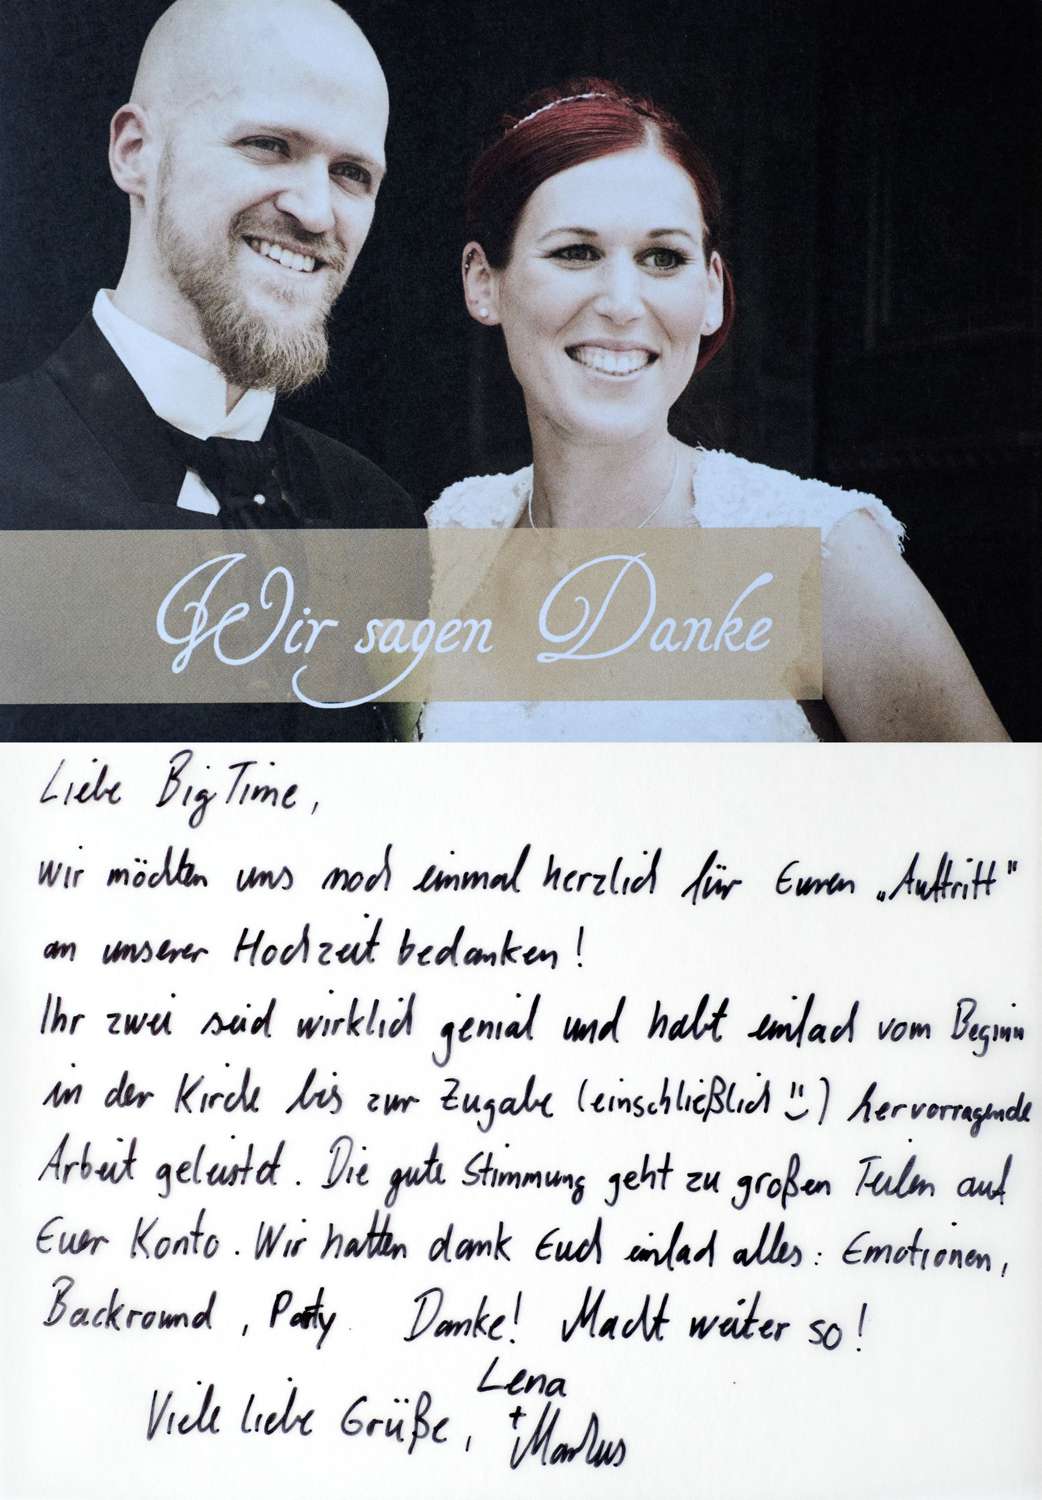 Wir sagen Danke
Liebe Big Time,
wir möchten uns noch einmal herzlich für Euren „Auftritt"
an unserer Hochzeit bedanken!
Ihr zwei seid wirklich genial und habt einfach vom Beginn
in der Kirche bis zur Zugabe (einschließlich ") hervorragende
Arbeit geleistet. Die gute Stimmung geht zu großen Teilen auf
Euer Konto. Wir hatten dank Euch einfach alles: Emotionen,
Backround, Party. Danke! Macht weiter so!
Viele liebe Grüße, Lena
+ Markus